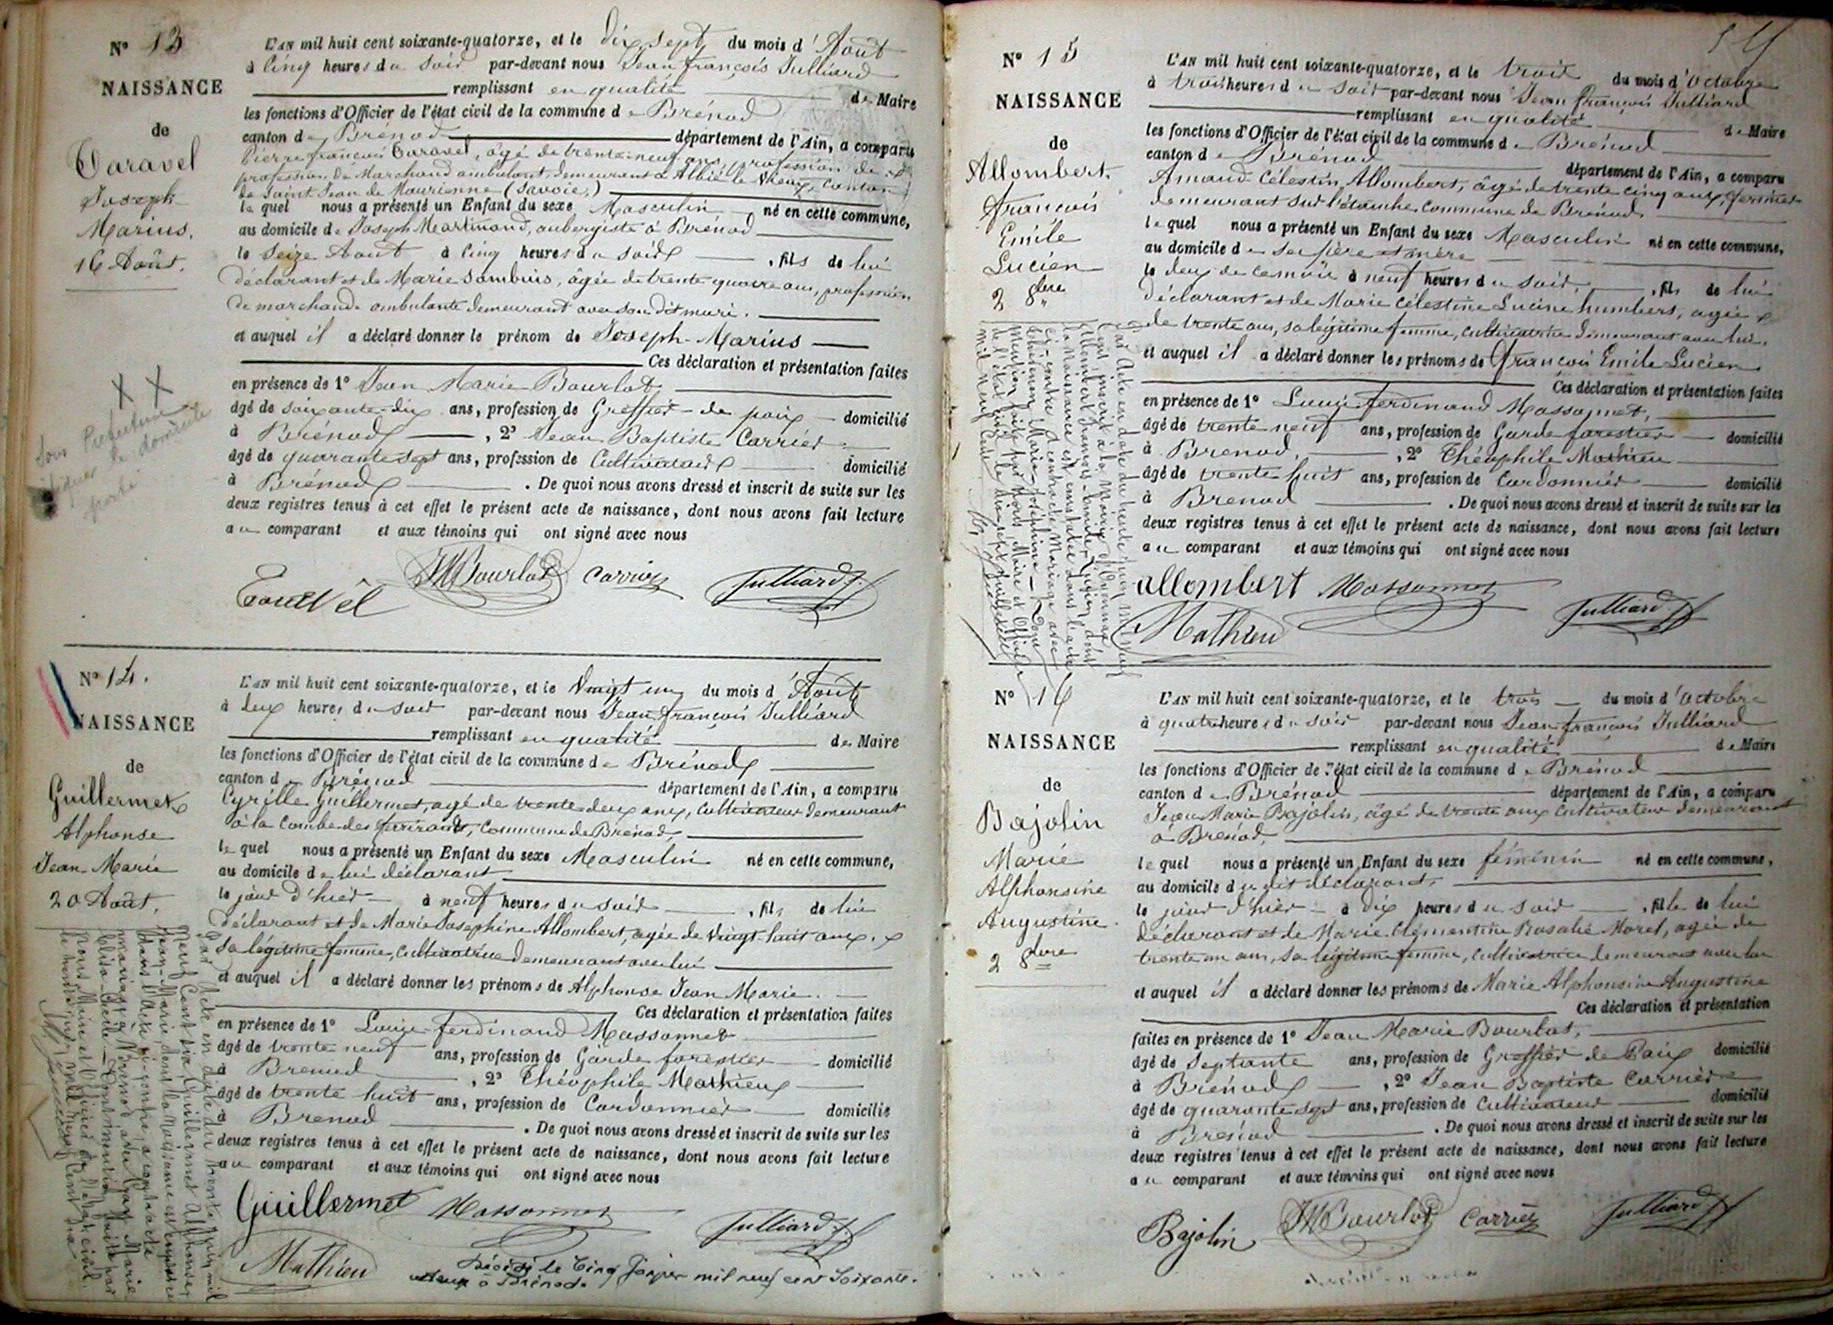 N° 13
NAISSANCE
de
Caravel
Joseph
Marius.
16 Août.
L'AN mil huit cent soixante-quatorze, et le dix sept du mois d'Août
à cinq heures du soir par-devant nous Jean François Julliard
remplissant en qualité de Maire
les fonctions d'Officier de l'état civil de la commune de Brénod
canton de Brénod département de l'Ain, a comparu
Pierre françois Caravel, âgé de trente-neuf ans, profession de
profession de Marchand ambulant, demeurant à Albié le Vieux, Canton
de Saint Jean de Maurienne (Savoie,)
lequel nous a présenté un Enfant du sexe Masculin, né en cette commune,
au domicile de Joseph Martinand, aubergiste à Brénod
le seize Août à cinq heures du soir, fils de lui
déclarant et de Marie Sambuis, âgée de trente quatre ans, profession
de marchande ambulante demeurant avec son dit mari.
et auquel il a déclaré donner le prénom de Joseph Marius
Ces déclaration et présentation faites
en présence de 1° Jean Marie Bourbot
âgé de soixante-dix ans, profession de Greffier de paix domicilié
à Brénod, 2° Jean Baptiste Carrier
âgé de quarante sept ans, profession de Cultivateur domicilié
à Brénod. De quoi nous avons dressé et inscrit de suite sur les
deux registres tenus à cet effet le présent acte de naissance, dont nous avons fait lecture
au comparant et aux témoins qui ont signé avec nous
JMBourbot Carrier Julliard
X X
Sous Préfecture
de domicile
N° 14.
NAISSANCE
de
Guillermet
Alphonse
Jean Marie
20 Août.
L'AN mil huit cent soixante-quatorze, et le Vingt un du mois d'Août
à deux heures du soir par-devant nous Jean françois Julliard
remplissant en qualité de Maire
les fonctions d'Officier de l'état civil de la commune de Brénod
canton de Brénod département de l'Ain, a comparu
Cyrille Guillermet, agé de trente deux ans, Cultivateur demeurant
à la Combe des commune de Brénod,
lequel nous a présenté un Enfant du sexe Masculin né en cette commune,
au domicile de lui déclarant
le jour d'hier à neuf heures du soir, fils de lui
déclarant et de Marie Josephine Allombert, agée de Vingt huit ans,
Sa légitime femme, Cultivatrice demeurant avec lui
et auquel il a déclaré donner les prénoms de Alphonse Jean Marie.
Ces déclaration et présentation faites
en présence de 1° Louis ferdinand Massonnet
âgé de trente neuf ans, profession de Garde forestier domicilié
à Brenod, 2° Théophile Mathieu
âgé de trente huit ans, profession de Cordonnier domicilié
à Brenod. De quoi nous avons dressé et inscrit de suite sur les
deux registres tenus à cet effet le présent acte de naissance, dont nous avons fait lecture
au comparant et aux témoins qui ont signé avec nous
Guillermet Massonnet Julliard
Mathieu
Décédé le Cinq Janvier mil neuf cent Soixante
deux à Brénod.
Par Acte en date du trente juin mil
neuf Cent six, Guillermet Alphonse
Jean-Marie dont la naissance est constatée
dans l'Acte ci-contre, a contracté
mariage à Brénod, avec Marie
nous Maire et Officier de l'état civil,
N° 15
NAISSANCE
de
Allombert.
François
Emile
Lucien
2 8bre
L'AN mil huit cent soixante-quatorze, et le trois du mois d'octobre
à trois heures du soir par-devant nous Jean françois Julliard
remplissant en qualité de Maire
les fonctions d'Officier de l'état civil de la commune de Brénod
canton de Brénod département de l'Ain, a comparu
Amand Célestin Allombert, âgé de trente cinq ans, fermier
demeurant sur l'étanche, commune de Brénod
lequel nous a présenté un Enfant du sexe Masculin né en cette commune,
au domicile de ses père et mère
le deux de ce mois à neuf heures du soir, fils de lui
déclarant et de Marie célestine Lucine humbert, agée
de trente ans, sa légitime femme, cultivatrice demeurant avec lui.
et auquel il a déclaré donner les prénoms de François Emile Lucien
Ces déclaration et présentation faites
en présence de 1° Louis ferdinand Massonnet,
âgé de trente neuf ans, profession de Garde forestier domicilié
à Brenod., 2° Théophile Mathieu
âgé de trente huit ans, profession de Cordonnier domicilié
à Brenod. De quoi nous avons dressé et inscrit de suite sur les
deux registres tenus à cet effet le présent acte de naissance, dont nous avons fait lecture
au comparant et aux témoins qui ont signé avec nous
allombert Massonnet Julliard
Mathieu
N° 16
NAISSANCE
de
Bajolin
Marie
Alphonsine
Augustine.
2 8bre
L'AN mil huit cent soixante-quatorze, et le trois du mois d'octobre
à quatre heures du soir par-devant nous Jean françois Julliard
remplissant en qualité de Maire
les fonctions d'Officier de l'état civil de la commune de Brénod
canton de Brénod département de l'Ain, a comparu
Jean Marie Bajolin, âgé de trente ans Cultivateur demeurant
à Brénod,
lequel nous a présenté un Enfant du sexe féminin né en cette commune,
au domicile du dit déclarant,
le jour d'hier à dix heures du soir, fille de lui
déclarant et de Marie Clémentine Rosalie Morel, agée de
trente un ans, sa légitime femme, cultivatrice demeurant avec lui
et auquel il a déclaré donner les prénoms de Marie Alphonsine Augustine
Ces déclaration et présentation
faites en présence de 1° Jean Marie Bourbot,
âgé de septante ans, profession de Greffier de Paix domicilié
à Brénod, 2° Jean Baptiste Carrier
âgé de quarante sept ans, profession de Cultivateur domicilié
à Brénod. De quoi nous avons dressé et inscrit de suite sur les
deux registres tenus à cet effet le présent acte de naissance, dont nous avons fait lecture
au comparant et aux témoins qui ont signé avec nous
Bajolin JMBourbot Carrier Julliard